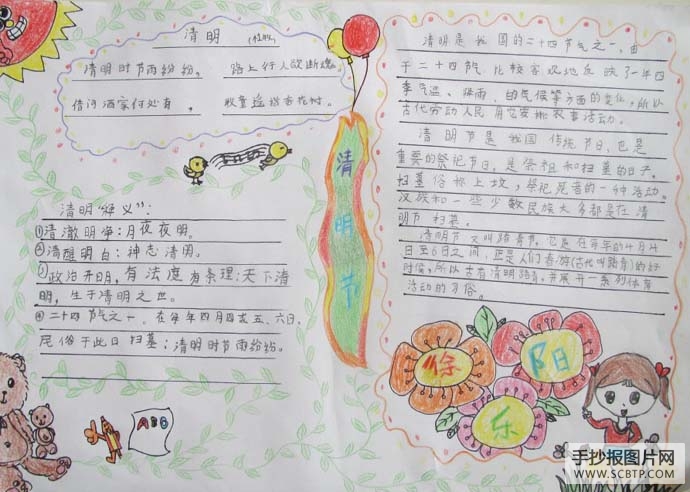 清明 (杜牧)
清明时节雨纷纷。 路上行人欲断魂。
借问酒家何处有。 牧童遥指杏花村。
清明“释义”：
①清澈明净：月夜夜明。
②清醒明白：神志清明。
③政治开明，有法度有条理：天下清
明，生于清明之世。
④二十四节气之一，在每年四月四或五、六日，
民俗于此日扫墓：清明时节雨纷纷。
清明节
清明是我国的二十四节气之一。由
于二十四节气比较客观地反映了一年四
季气温、降雨、物气候等方面的变化，所以
古代劳动人民用它安排农事活动。
清明节是我国传统节日，也是
重要的祭祀节日，是祭祖和扫墓的日子。
扫墓俗称上坟，祭祀死者的一种活动。
汉族和一些少数民族大多都是在清
明节扫墓。
清明节又叫踏青节，它是在每年的4月4
日至6日之间，正是人们春游(古代叫踏青)的好
时候，所以古有清明踏青，并展开一系列体育
活动的习俗。
徐
阳
乐
ABC
手抄报图片网
WWW.SCBTP.COM